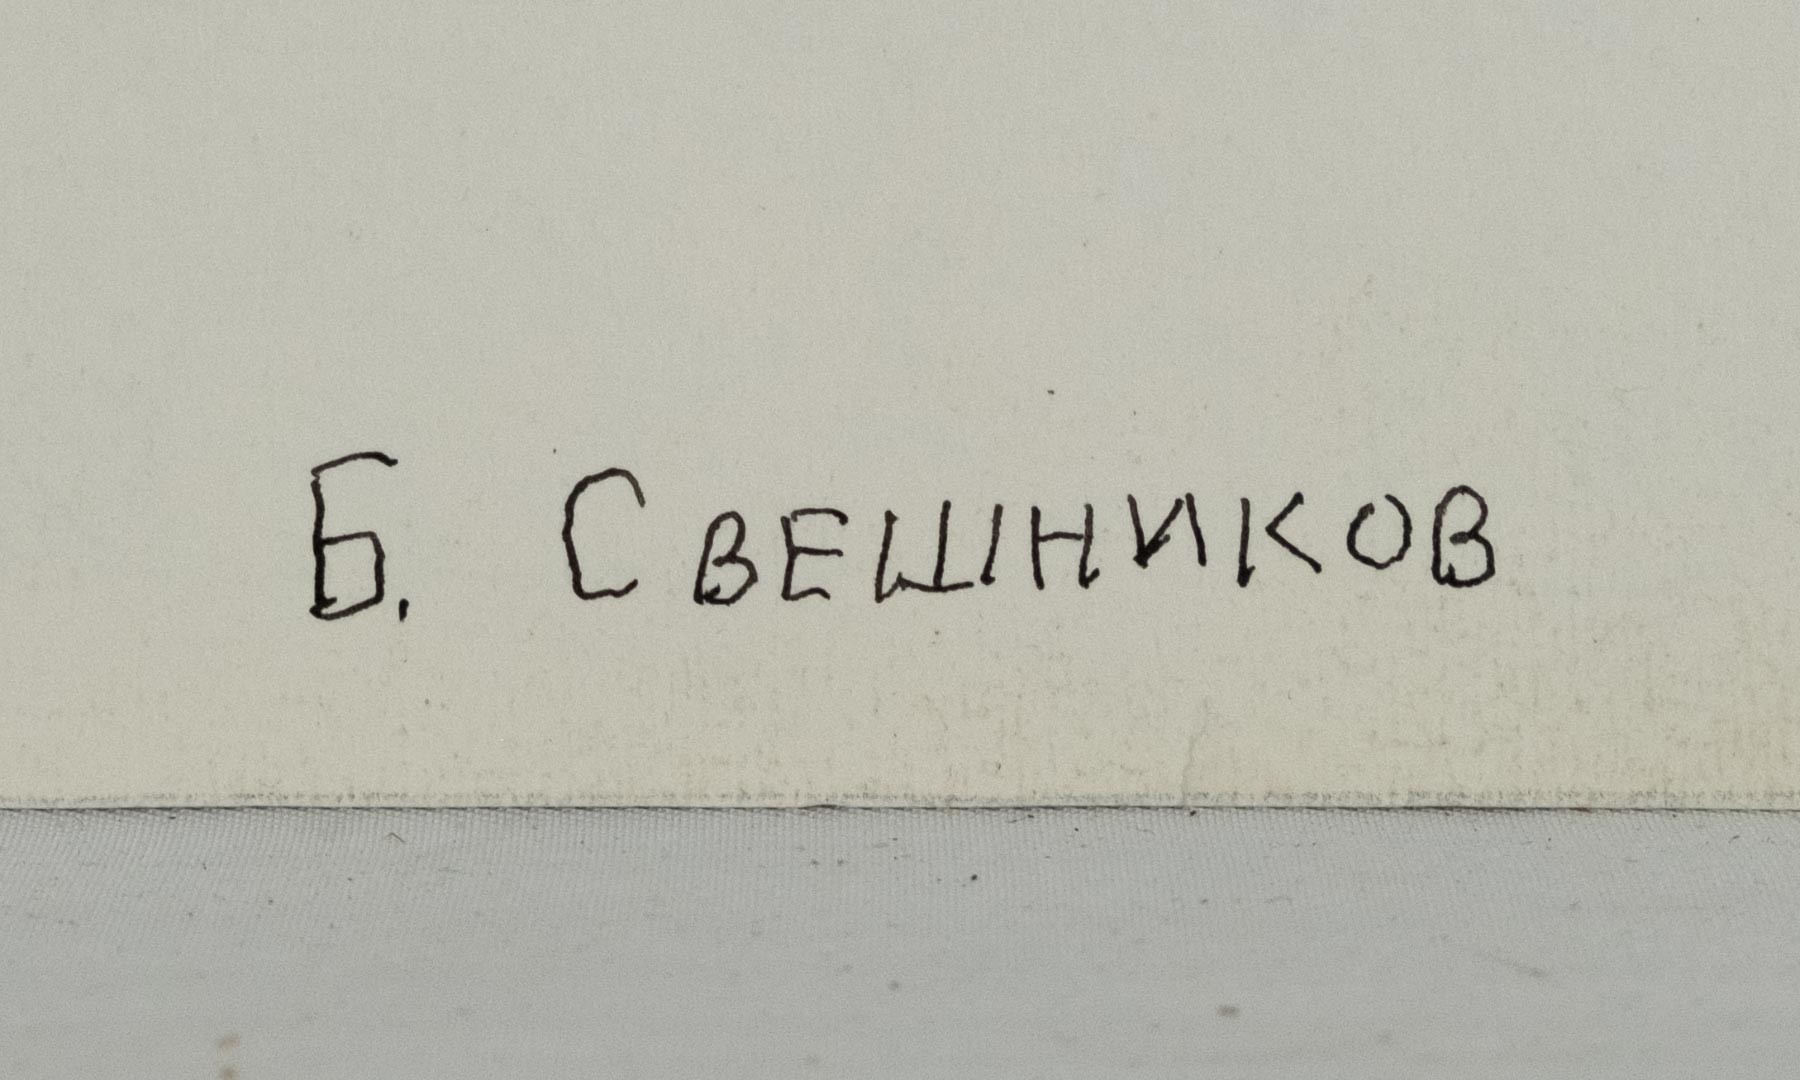 Б. Свешников